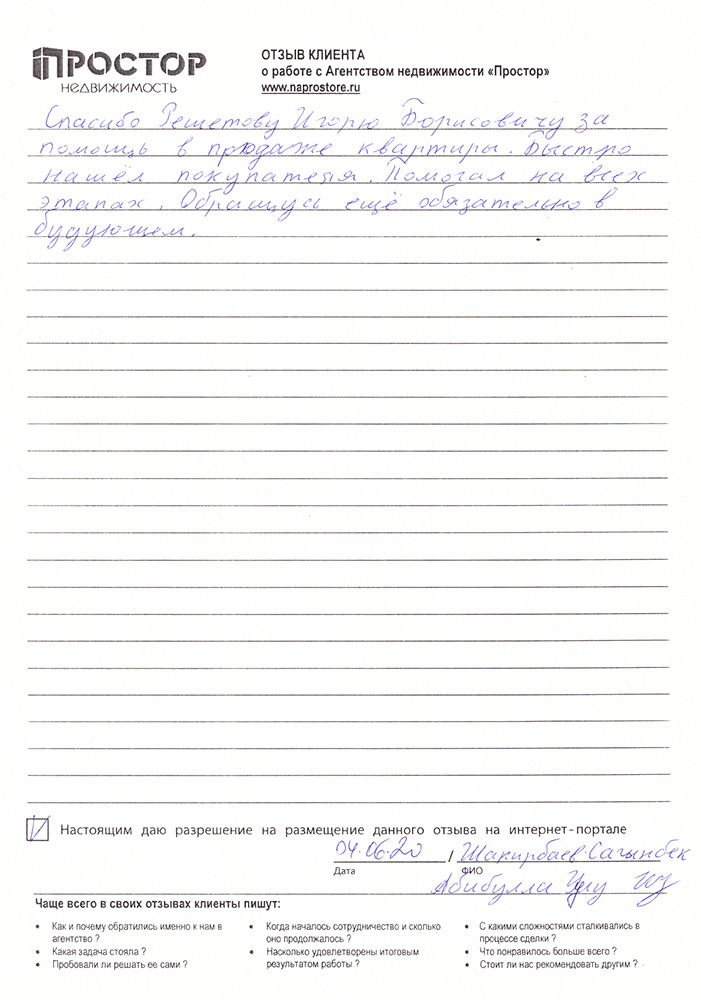 ПРОСТОР
НЕДВИЖИМОСТЬ
ОТЗЫВ КЛИЕНТА
о работе с Агентством недвижимости «Простор»
www.naprostore.ru
Спасибо Решетову Игорю Борисовичу за
помощь в продаже квартиры. Быстро
нашёл покупателя. Помогал на всех
этапах. Обращусь ещё обязательно в
будующем.
Настоящим даю разрешение на размещение данного отзыва на интернет-портале
04.06.20 / Шакирбаев Сагынбек
Дата ФИО
Абибулла Уулу
Чаще всего в своих отзывах клиенты пишут:
• Как и почему обратились именно к нам в
агентство ?
• Какая задача стояла ?
• Пробовали ли решать ее сами ?
• Когда началось сотрудничество и сколько
оно продолжалось ?
• Насколько удовлетворены итоговым
результатом работы ?
• С какими сложностями сталкивались в
процессе сделки ?
• Что понравилось больше всего ?
• Стоит ли нас рекомендовать другим ?